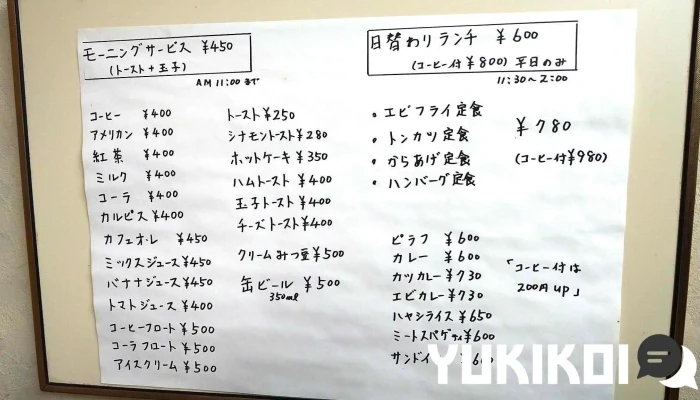 モーニングサービス ¥450
(トースト+玉子)
AM 11:00まで
コーヒー ¥400
アメリカン ¥400
紅茶 ¥400
ミルク ¥400
コーラ ¥400
カルピス ¥400
カフェオ・レ ¥450
ミックスジュース ¥450
バナナジュース ¥450
トマトジュース ¥400
コーヒーフロート ¥500
コーラフロート ¥500
アイスクリーム ¥500
トースト ¥250
シナモントースト ¥280
ホットケーキ ¥350
ハムトースト ¥400
玉子トースト ¥400
チーズトースト ¥400
クリームみつ豆 ¥500
缶ビール ¥500
350ml
日替わりランチ ¥600
(コーヒー付¥800) 平日のみ
11:30~2:00
・エビフライ定食
・トンカツ定食
・からあげ定食
・ハンバーグ定食
¥780
(コーヒー付¥980)
ピラフ ¥600
カレー ¥600
カツカレー ¥730
エビカレー ¥730
ハヤシライス ¥650
ミートスパゲティ ¥600
サンドイ
「コーヒー付は
200円up」
YUKIKOI